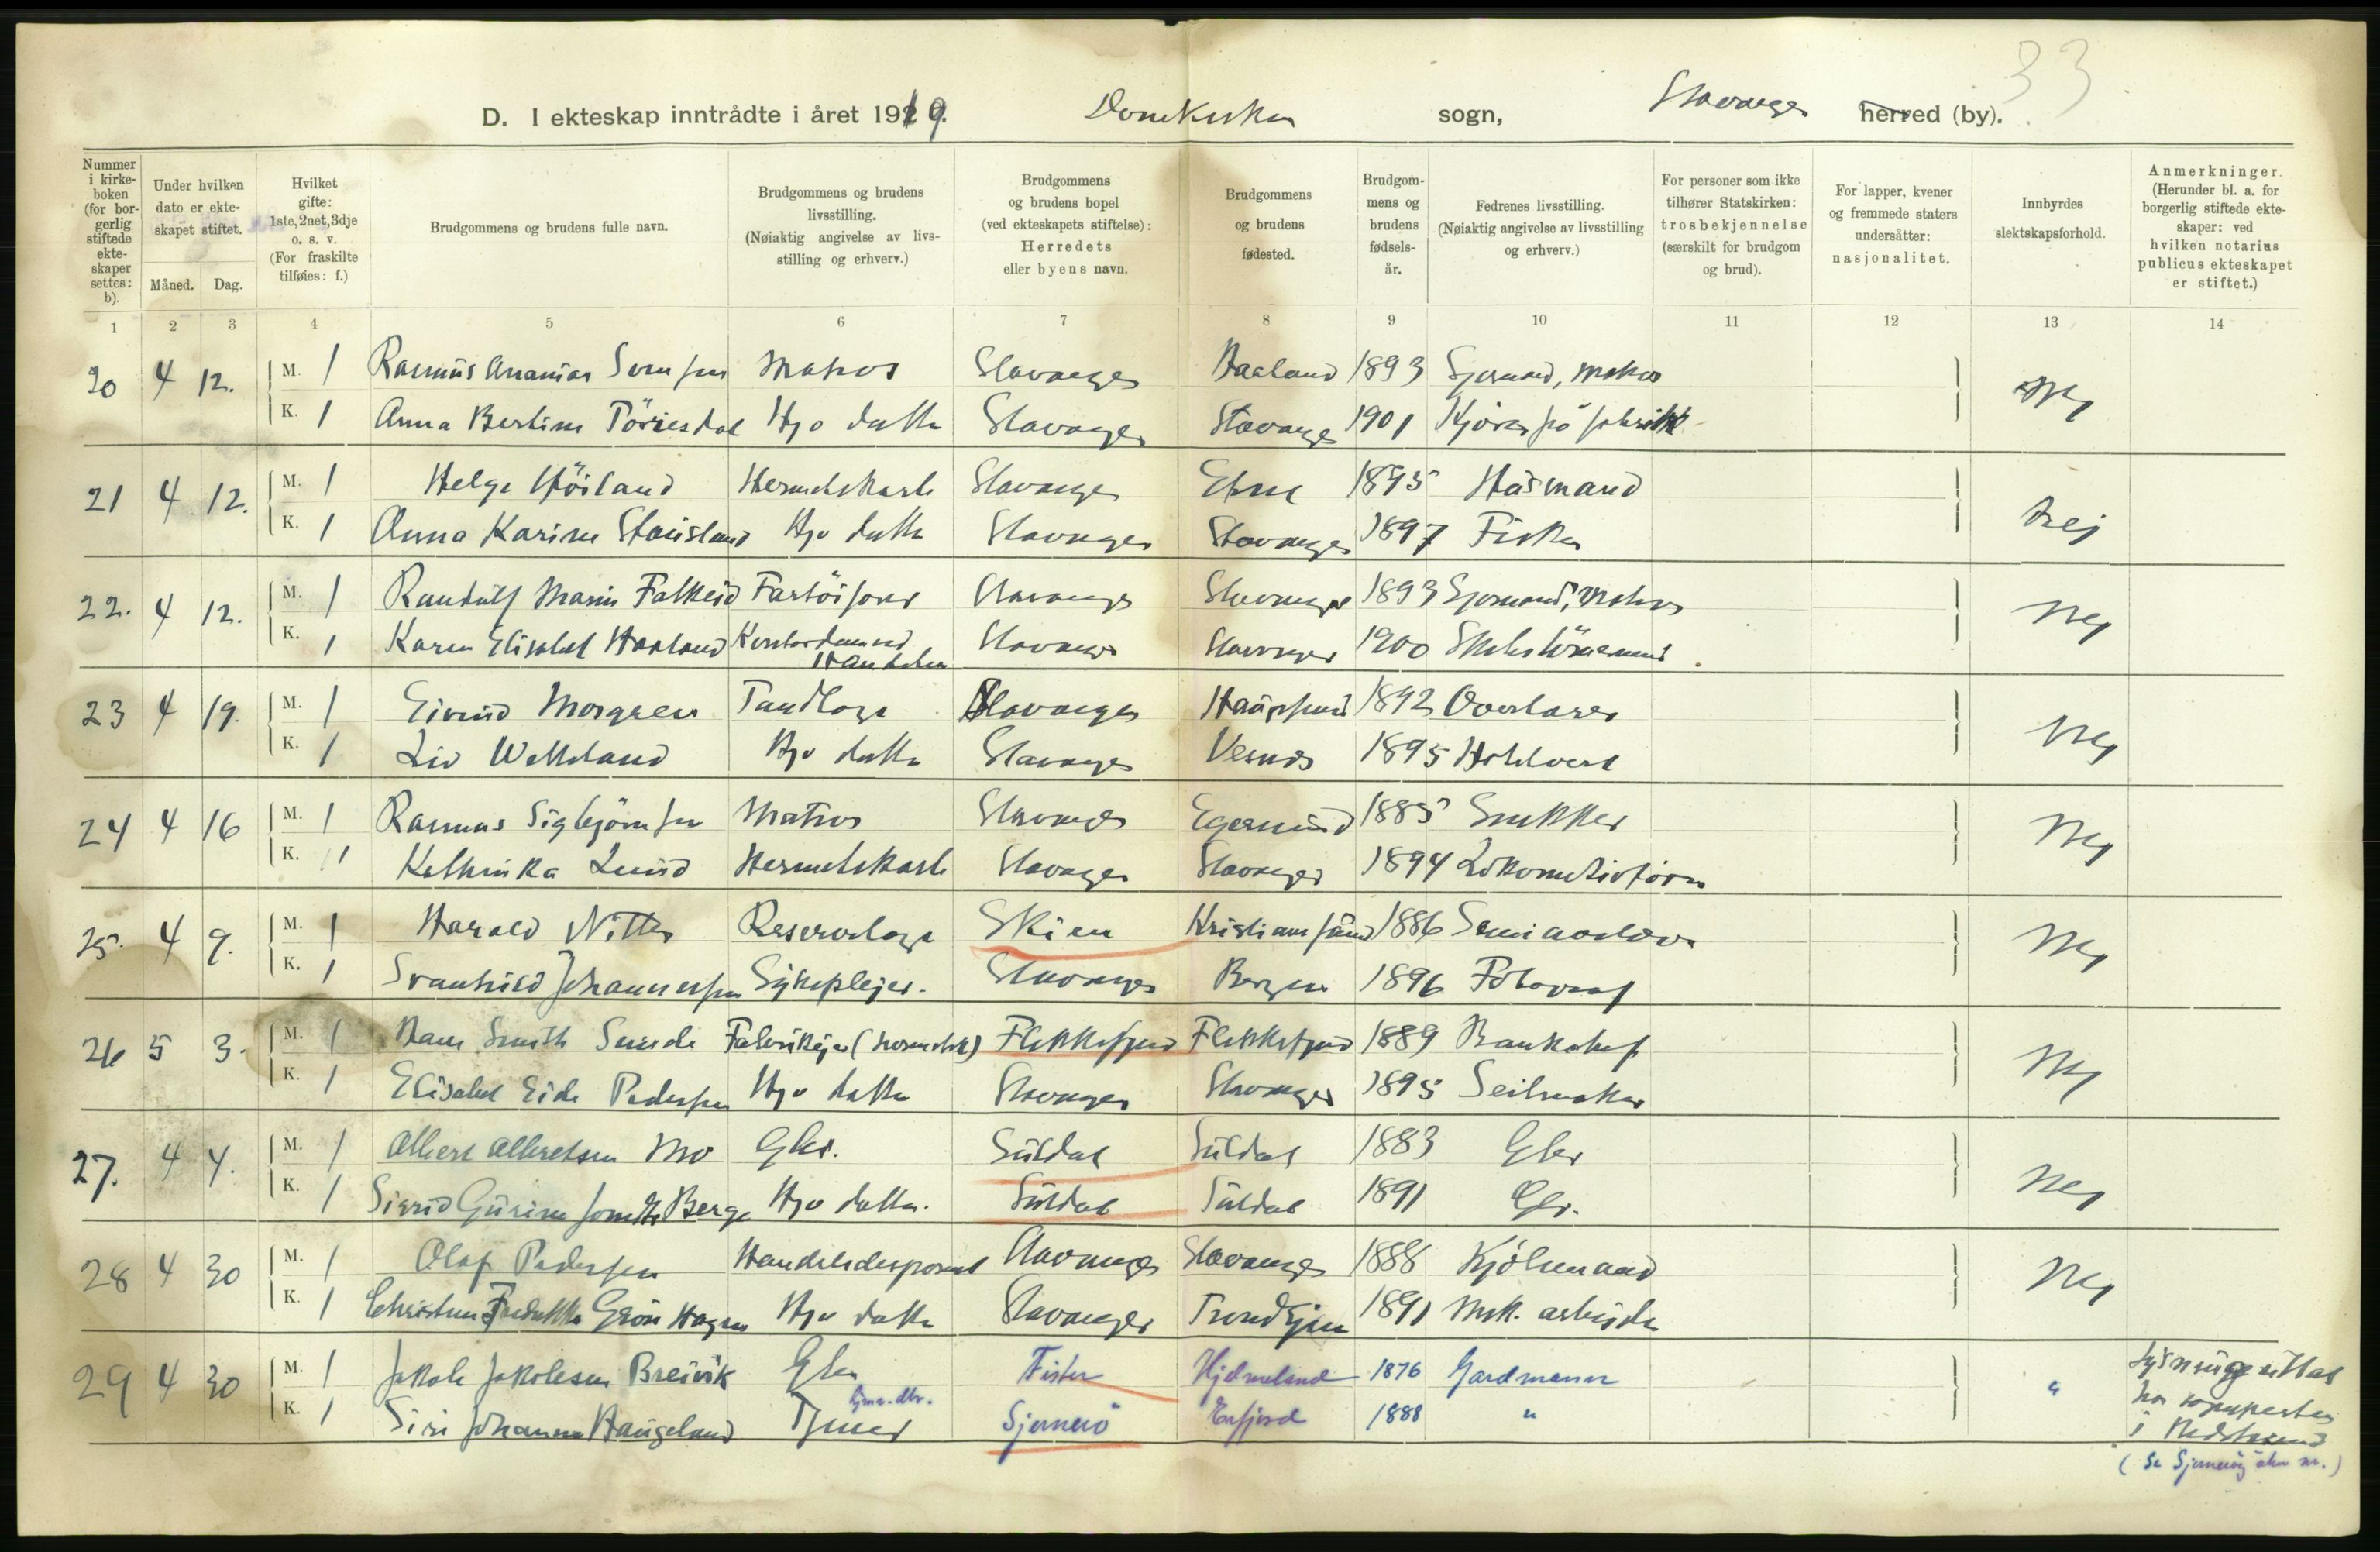 33
D. I ekteskap inntrådte i året 1919. Domkirken sogn, Stavanger herred (by).
Nummer i kirkeboken (for borgerlig stiftede ekteskaper settes: b).
Under hvilken dato er ekteskapet stiftet.
Måned. Dag.
Hvilket gifte: 1ste, 2net, 3dje o. s. v. (For fraskilte tilføies: f.)
Brudgommens og brudens fulle navn.
Brudgommens og brudens livsstilling. (Nøiaktig angivelse av livsstilling og erhverv.)
Brudgommens og brudens bopel (ved ekteskapets stiftelse): Herredets eller byens navn.
Brudgommens og brudens fødested.
Brudgommens og brudens fødselsår.
Fedrenes livsstilling. (Nøiaktig angivelse av livsstilling og erhverv.)
For personer som ikke tilhører Statskirken: trosbekjennelse (særskilt for brudgom og brud).
For lapper, kvener og fremmede staters undersåtter: nasjonalitet.
Innbyrdes slektskapsforhold.
Anmerkninger. (Herunder bl. a. for borgerlig stiftede ekteskaper: ved hvilken notarius publicus ekteskapet er stiftet.)
1 2 3 4 5 6 7 8 9 10 11 12 13 14
20 4 12. M. 1 Rasmus Ananias Svensen Matros Stavanger Haaland 1893 Sjømand, matros Nej
K. 1 Anna Bertine Törresdal Hjo datter Stavanger Stavanger 1901 Kjører på fabrikk
21 4 12. M. 1 Helge Höiland Hermetikkarb Stavanger Etne 1895 Husmand Nej
K. 1 Anna Karine Stausland Hjo datter Stavanger Stavanger 1897 Fisker
22. 4 12. M. 1 Randulf Marin Falkeid Stavanger Stavanger 1893 Sjømand, matros Nej
K. 1 Karen Elisabet Haaland Kontordame ved Handelen Stavanger Stavanger 1900
23 4 19. M. 1 Eivind Morgren Tandlæge Stavanger 1892 Overlærer Nej
K. 1 Liv Hjo datter Stavanger 1895 Hotelvert
24 4 16 M. 1 Rasmus Sigbjörnsen Matros Stavanger Egersund 1885 Snekker Nej
K. 1 Kathinka Lund Hermetikkarb Stavanger Stavanger 1894 Lokomotivförer
25. 4 9. M. 1 Harald Nitter Reservelæge Skien Kristiansund 1886 Nej
K. 1 Svanhild Johannessen Sykepleier. Stavanger Bergen 1896 Fotograf
26 5 3. M. 1 Hans Smith Sunde Fabrikeier (hermetik) Flekkefjord Flekkefjord 1889 Banksjef Nej
K. 1 Elisabet Eide Pedersen Hjo datter Stavanger Stavanger 1895 Seilmaker
27. 4 4. M. 1 Albert Albretsen Mo Gbr. Suldal Suldal 1883 Gbr Nej
K. 1 Sigrid Gurine Jonsdtr Berge Hjo datter. Suldal Suldal 1891 Gbr.
28 4 30 M. 1 Olaf Pedersen Handelsdisponent Stavanger Stavanger 1888 Kjölmand Nej
K. 1 Christine Fredrikke Grön Hagen Hjo datter Stavanger Trondhjem 1891 Mek. arbeider
29 4 30 M. 1 Jakob Jakobsen Breivik Gbr Fister Hjelmeland 1876 Gardmann "
K. 1 Siri Johanna Haugeland Tjener Gjmr. dtr. Sjernerö Erfjord 1888 "
Lysning uttat
hos sognepresten
i Nedstrand
(Se Sjerneröy nr.)